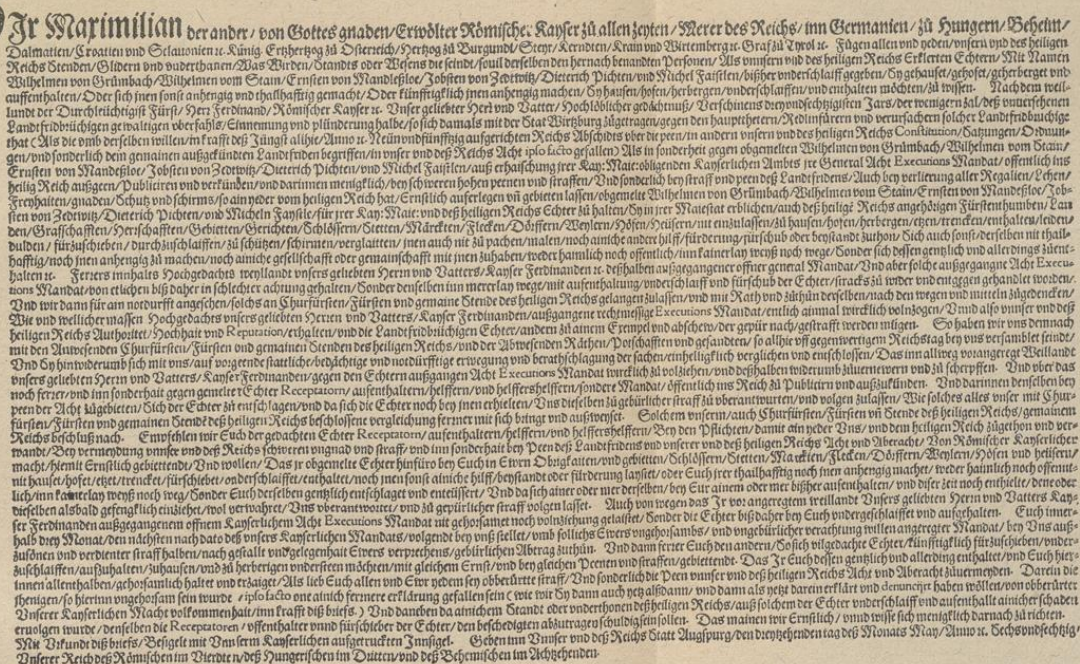 Wir Maximilian der ander/ von Gottes gnaden/ Erwölter Römischer Kayser zů allen zeyten/ Merer des Reichs/ inn Germanien/ zů Hungern/ Beheim/
Dalmatien/ Croatien und Sclauonien ꝛc. Künig. Ertzhertzog zů Osterreich/ Hertzog zů Burgundi/ Steyr/ Kerndten/ Krain und Wirtemberg ꝛc. Graf zů Tyrol ꝛc. Fügen allen und yeden/ unsern und des heiligen
Reichs Stenden/ Glidern und underthanen/ Was Wirden/ Standts oder Wesens die seindt/ souil derselben den hernach benandten Personen/ Als unsern und des heiligen Reichs Erklerten Echtern/ Mit Namen
Wilhelmen von Grümbach/ Wilhelmen vom Stain/ Ernsten von Mandeßloe/ Jobsten von Zedtwitz/ Dieterich Pichten/ und Michel Faistlen/ bißher underschlaiff gegeben/ Sy gehauset/ gehofet/ geherberget und
auffenthalten/ Oder sich jnen sonst anhengig und thailhafftig gemacht/ Oder künfftigklich jnen anhengig machen/ Sy hausen/ hofen/ herbergen/ underschlaiffen/ und enthalten möchten/ zů wissen. Nach dem weil-
lundt der Durchleüchtigist Fürst/ Herr Ferdinand/ Römischer Kayser ꝛc. Unser geliebter Herr und Vatter/ Hochlöblicher gedächtnuß/ Verschinens dreyundsechtzigisten Jars/ der wenigern zal/ deß unuersehenen
Landtfridbrüchigen gewaltigen überfahls/ Einnemung und plünderung halbe/ so sich damals mit der Stat Wirtzburg zůgetragen/ gegen den haupthetern/ Redlinfürern und verursachern solcher Landtfridbrüchige
that (Als die umb derselben willen/ in krafft deß Jüngst alhie/ Anno ꝛc. Neün und fünffzig auffgerichten Reichs Abschidts über die peen/ in andern unsern und des heiligen Reichs Constitution/ Satzungen/ Ordnun-
gen/ und sonderlich dem gemainen außgekündten Landtfriden begriffen/ in unser und deß Reichs Acht ipso facto gefallen) Als in sonderheit gegen obgemelten Wilhelmen von Grümbach/ Wilhelmen vom Stain/
Ernsten von Mandeßloe/ Jobsten von Zedtwitz/ Dieterich Pichten/ und Michel Faistlen/ auß erhaischung jrer Kay: Maie: obligenden Kayserlichen Ambts jre General Acht Executions Mandat/ offentlich ins
heilig Reich außgeen/ Publicirn und verkünden/ und darinnen menigklich/ bey schweren hohen peenen und straffen/ Und sonderlich bey straff und peen deß Landtfridens/ Auch bey verlierung aller Regalien/ Lehen/
Freyhaiten/ gnaden/ Schutz und schirms/ so ain yeder vom heiligen Reich hat/ Ernstlich aufferlegen und gebieten lassen/ obgemelte Wilhelmen von Grümbach/ Wilhelmen vom Stain/ Ernsten von Mandeßloe/ Job-
sten von Zedtwitz/ Dieterich Pichten/ und Micheln Faystle/ für jrer Kay: Maie: und deß heiligen Reichs Echter zů halten/ Sy in jrer Maiestat erblichen/ auch deß heilige Reichs angehörigen Fürstenthumben/ Lan
den/ Graffschafften/ Herrschafften/ Gebieten/ Gerichten/ Schlössern/ Stetten/ Märckten/ Flecken/ Dörffern/ Weylern/ Höfen/ Heüsern/ nit einzulassen/ zů hausen/ hofen/ herbergen/ etzen/ trencken/ enthalten/ leiden/
dulden/ fürzuschieben/ durchzuschlaiffen/ zů schützen/ schirmen/ verglaitten/ jnen auch nit zů pachen/ malen/ noch ainiche ander hilff/ fürderung/ fürschub oder beystandt zůthon/ Sich auch sonst/ derselben nit thail-
hafftig/ noch jnen anhengig zů machen/ noch ainiche gesellschafft oder gemeinschafft mit jnen zůhaben/ weder haimlich noch offentlich/ inn kainerlay weyß noch wege/ Sonder sich dessen gentzlich und allerdings zůent-
halten ꝛc. Ferrers innhalts Hochgedachts weyllandt unsers geliebten Herrn und Vatters/ Kayser Ferdinanden ꝛc. deßhalben außgegangener offner general Mandat/ Und aber solche außgegangne Acht Execu-
tions Mandat/ von etlichen biß daher in schlechter achtung gehalten/ Sonder denselben inn mererlay wege/ mit auffenthaltung/ underschlaiff und fürschub der Echter/ stracks zů wider und entgegen gehandlet worden/
Und wir dann für ain notdurfft angesehen/ solchs an Churfürsten/ Fürsten und gemaine Stende des heiligen Reichs gelangen zulassen/ und mit Rath und zůthun derselben/ nach den wegen und mitteln zůgedencken/
Wie und wellicher massen Hochgedachts unsers geliebten Herren und Vatters/ Kayser Ferdinanden/ außgangene rechtmessige Executions Mandat/ entlich ainmal wircklich volnzogen/ Unnd also unser und deß
heiligen Reichs Authoritet/ Hochhait und Reputation/ erhalten/ und die Landtfridbrüchigen Echter/ andern zů ainem Exempel und abschew/ der gepür nach/ gestrafft werden mügen. So haben wir uns demnach
mit den Anwesenden Churfürsten/ Fürsten und gemainen Stenden des heiligen Reichs/ und der Abwesenden Räthen/ Potschafften und gesandten/ so allhie off gegenwertigem Reichstag bey uns versamblet seindt/
Und Sy hinwiderumb sich mit uns/ auf vorgeende stattliche/ bedächtige und notdürfftige erwegung und berathschlagung der sachen/ einhelligklich verglichen und entschlossen/ Das inn allweg vorangeregt Weillandt
unsers geliebten Herrn und Vatters/ Kayser Ferdinanden/ gegen den Echtern außgangen Acht Executions Mandat wircklich zů volziehen/ und deßhalben widerumb zůuernewern und zů scherpffen. Und über das
noch ferrer/ und inn sonderhait gegen gemelter Echter Receptatorn/ auffenthaltern/ helffern/ und helffershelffern/ sondere Mandat/ öffentlich ins Reich zů Publicirn und außzůkünden. Und darinnen denselben bey
peen der Acht zůgebieten/ Sich der Echter zů entschlagen/ und da sich die Echter noch bey jnen erhielten/ Uns dieselben zů gebürlicher straff zů überantwurten/ und volgen zulassen/ Wie solches alles unser mit Chur-
fürsten/ Fürsten und gemainen Stende deß heiligen Reichs beschlossne vergleichung ferrner mit sich bringt und außweyset. Solchem unserm/ auch Churfürsten/ Fürsten un Stende deß heiligen Reichs/ gemainem
Reichs beschluß nach. Empfehlen wir Euch der gedachten Echter Receptatorn/ auffenthaltern/ helffern/ und helffershelffern/ Bey den Pflichten/ damit ain yeder Uns/ und dem heiligen Reich zůgethon und ver-
wandt/ Bey vermeydung unser und deß Reichs schweren ungnad und straff/ und inn sonderhait bey Peen deß Landtfridens und unserer und deß heiligen Reichs Acht und Aberacht/ Von Römischer Kayserlicher
macht/ hiemit Ernstlich gebiettendt/ Und wollen/ Das jr obgemelte Echter hinfüro bey Euch in Ewrn Obrigkaiten/ und gebieten/ Schlössern/ Stetten/ Märckten/ Flecken/ Dörffern/ Weylern/ Höfen und heüsern/
nit hauset/ hofet/ etzet/ trencket/ fürschiebet/ underschlaiffet/ enthaltet/ noch jnen sonst ainiche hilff/ beystandt oder fürderung laystet/ oder Euch jrer thailhafftig noch jnen anhengig machet/ weder haimlich noch offennt-
lich/ inn kainerlay weyß noch weg/ Sonder Euch derselben gentzlich entschlaget und enteüssert/ Und da sich ainer oder mer derselben/ bey Eur ainem oder mer bißher auffenthalten/ und diser zeit noch enthielte/ dene oder
dieselben alsbald gefengklich einziehet/ wol verwahret/ Uns überantwortet/ und zů gepürlicher straff volgen lasset. Auch von wegen das Jr vor angeregten weillandt Unsers geliebten Herrn und Vatters Kay-
ser Ferdinanden außgegangenem offnem Kayserlichem Acht Executions Mandat nit gehorsamet noch volnziehung gelaistet/ Sonder die Echter biß daher bey Euch undergeschlaifft und aufgehalten. Euch inner-
halb drey Monat/ den nächsten nach dato deß unsers Kayserlichen Mandats/ volgendt bey uns stellet/ umb sollichs Ewers ungehorsambs/ und ungebürlicher verachtung willen angeregter Mandat/ bey Uns auß-
zůsönen und verdienter straff halben/ nach gestallt und gelegenheit Ewers verprechens/ gebürlichen Abtrag zuthůn. Und dann ferrer Euch den andern/ So sich vilgedachte Echter/ künfftigklich fürzuschieben/ under-
zuschlaiffen/ aufzuhalten/ zuhausen/ und zů herberigen understeen möchten/ mit gleichem Ernst/ und bey gleichen Peenen und straffen/ gebiettendt. Das Jr Euch dessen gentzlich und allerding enthaltet/ und Euch hier-
innen allenthalben/ gehorsamlich haltet und erzaiget/ Als lieb Euch allen und Ewr yedem sey obberürtte straff/ Und sonderlich die Peen unser und deß heiligen Reichs Acht und Aberacht zůuermeyden. Darein die
jhenigen/ so hierinn ungehorsam sein wurde/ ipso facto one ainich fernere erklärung gefallen sein (wie wir Sy dann auch yetz alßdann/ und dann als yetzt darein erklärt und denunciert haben wöllen/ von obberürter
Unserer Kayserlichen Macht volkommenhait/ inn krafft diß briefs.) Und daneben da ainichem Standt oder underthonen deß heiligen Reichs/ auß solchem der Echter underschlaiff und auffenthalt ainicher schaden
eruolgen wurde/ denselben die Receptatoren/ offenthalter unnd fürschieber der Echter/ den beschedigten abzutragen schuldig sein sollen. Das mainen wir Ernstlich/ unnd wisse sich menigklich darnach zů richten.
Mit Urkundt diß briefs/ Besigelt mit Unnserm Kayserlichen aufgetruckten Innsigel. Geben inn Unnser und deß Reichs Statt Augspurg/ den dreytzehenden tag deß Monats May/ Anno ꝛc. Sechsundsechtzig/
Unserer Reich deß Römischen im Vierdten/ deß Hungerischen im Dritten/ und deß Behemischen im Achtzehenden.